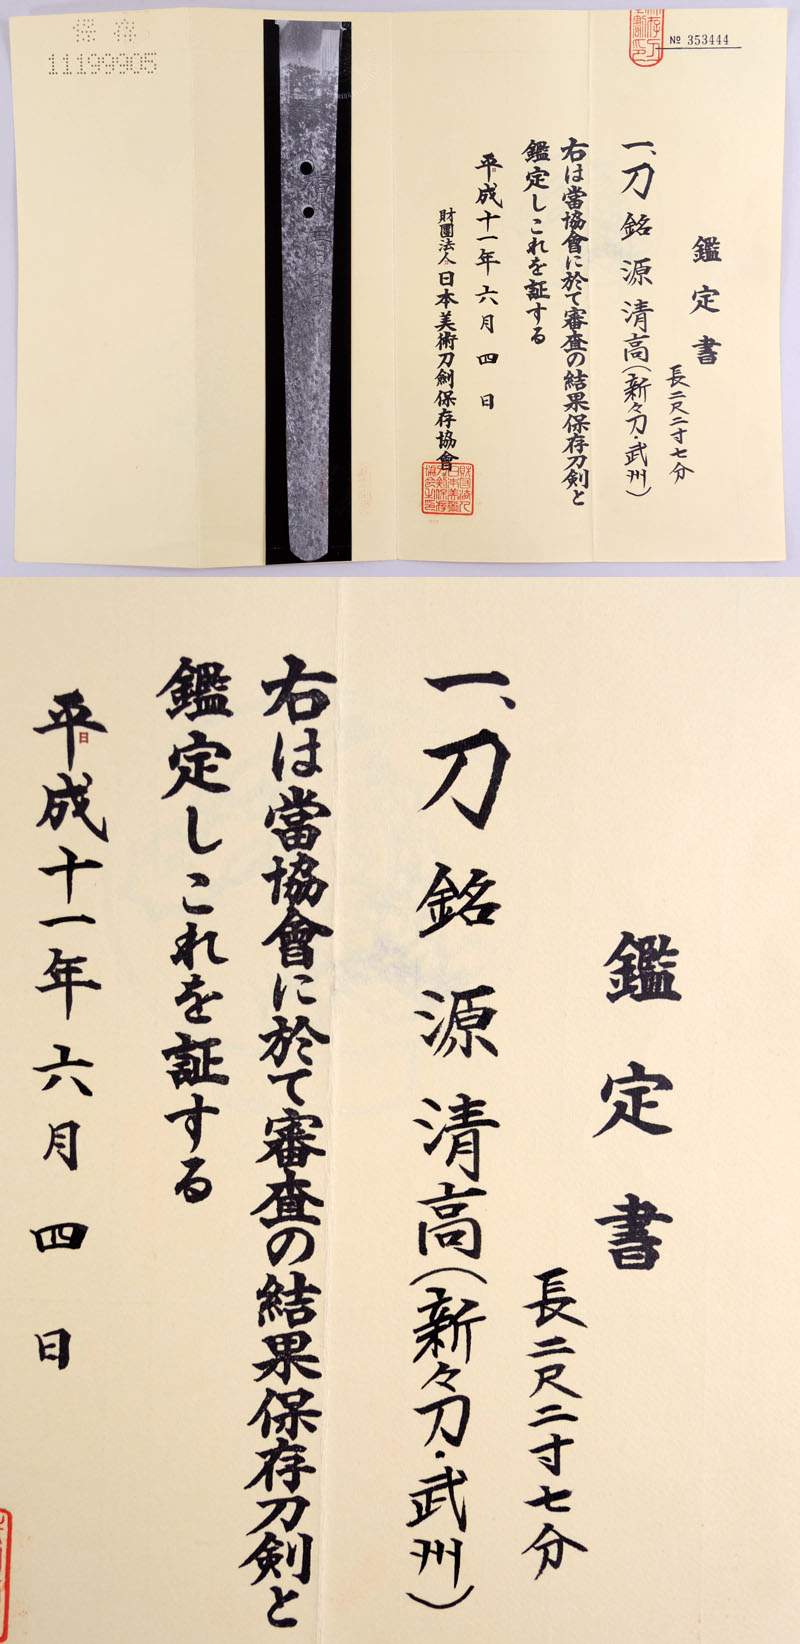 保存
11199905
№ 353444
鑑定書
長二尺二寸七分
一、刀 銘 源清高(新々刀・武州)
右は當協會に於て審査の結果保存刀剣と
鑑定しこれを証する
平成十一年六月四日
財團法人日本美術刀剣保存協會
鑑定書
長二尺二寸七分
一、刀 銘 源清高(新々刀・武州)
右は當協會に於て審査の結果保存刀剣と
鑑定しこれを証する
平成十一年六月四日